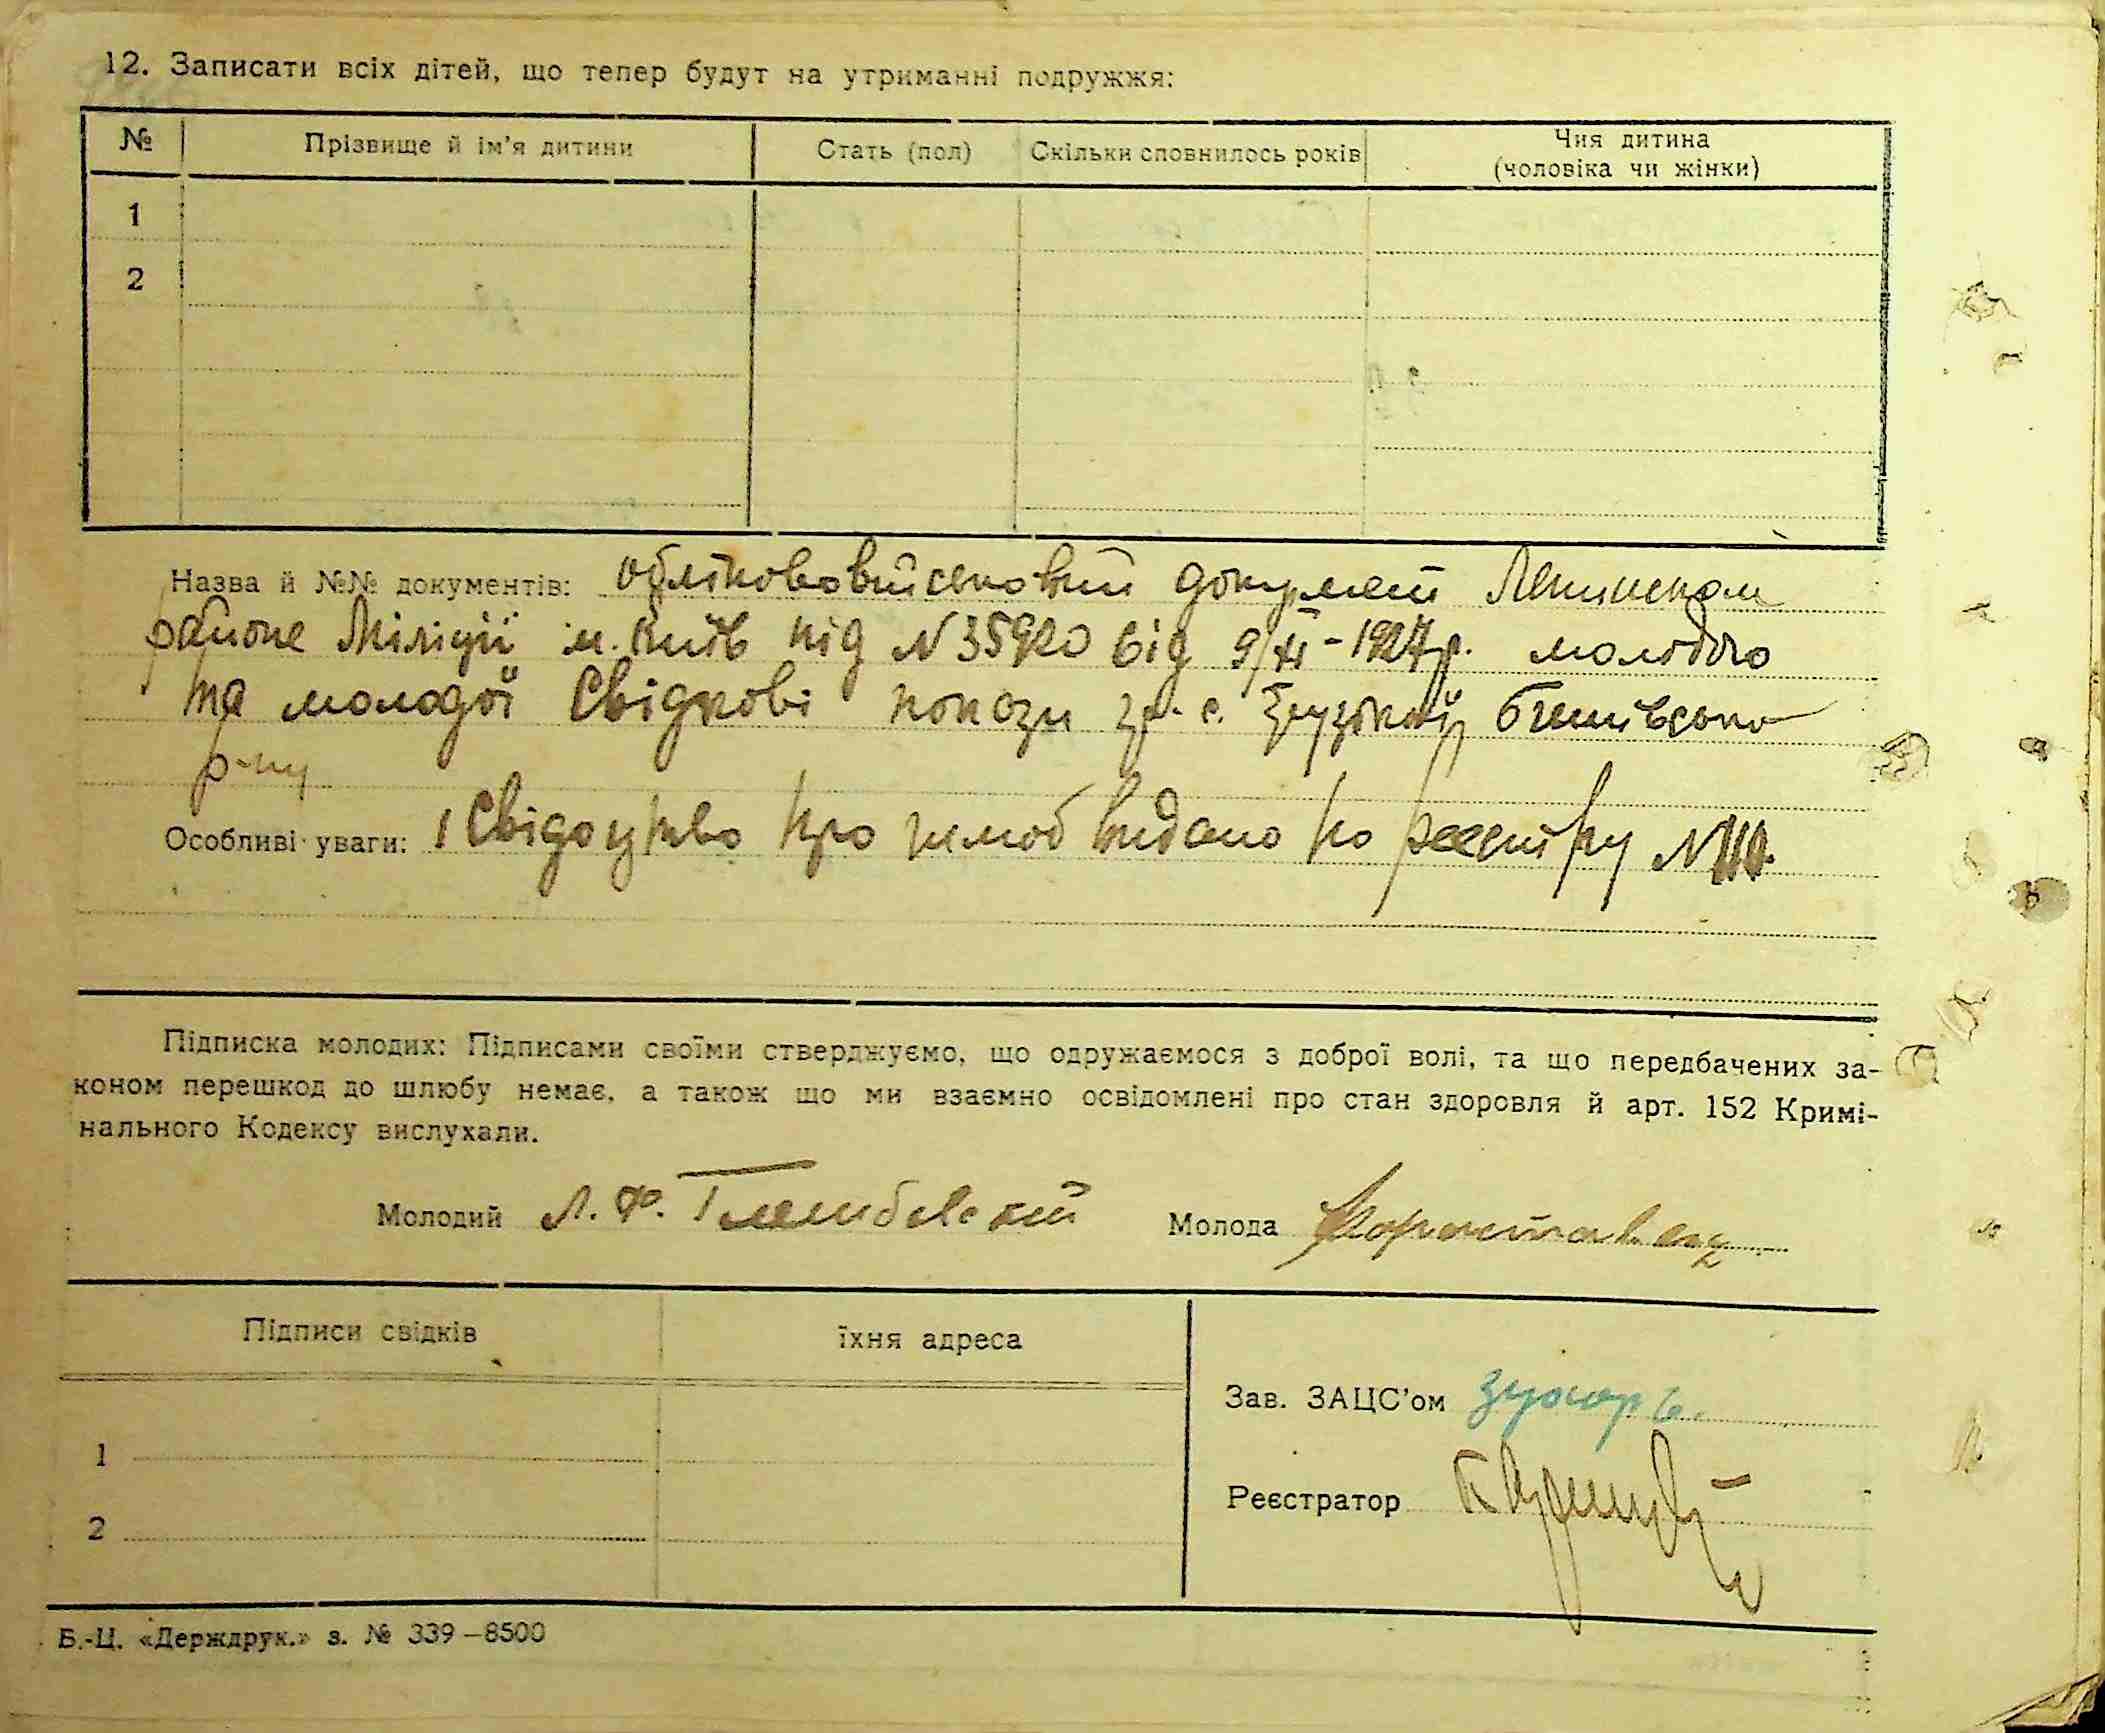 12. Записати всіх дітей, що тепер будут на утриманні подружжя:
№ Прізвище й ім'я дитини Стать (пол) Скільки сповнилось років Чия дитина (чоловіка чи жінки)
1
2
Назва й №№ документів: облікововійськовий документ
районе Міліції м. Київ під N 35920 від 9/XI-1927р. молодого
та молодої Свідкові покази
р-ну
Особливі уваги: 1 Свідоцтво про шлюб видано по реєстру N
Підписка молодих: Підписами своїми стверджуємо, що одружаємося з доброї волі, та що передбачених за-
коном перешкод до шлюбу немає, а також що ми взаємно освідомлені про стан здоровля й арт. 152 Кримі-
нального Кодексу вислухали.
Молодий Л. Ф. Молода
Підписи свідків їхня адреса
Зав. ЗАЦС'ом
1
Реєстратор
2
Б.-Ц. «Держдрук.» з. № 339–8500